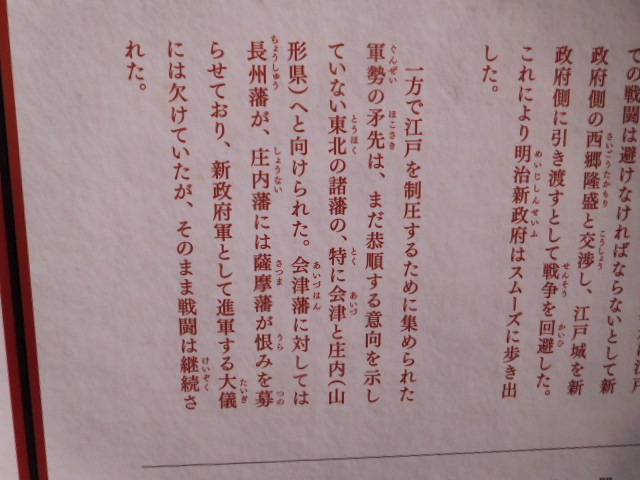 での戦闘は避けなければならないとして新
政府側の西郷隆盛と交渉し、江戸城を新
政府側に引き渡すとして戦争を回避した。
これにより明治新政府はスムーズに歩き出
した。
一方で江戸を制圧するために集められた
軍勢の矛先は、まだ恭順する意向を示し
ていない東北の諸藩の、特に会津と庄内(山
形県)へと向けられた。会津藩に対しては
長州藩が、庄内藩には薩摩藩が恨みを募
らせており、新政府軍として進軍する大儀
には欠けていたが、そのまま戦闘は継続さ
れた。